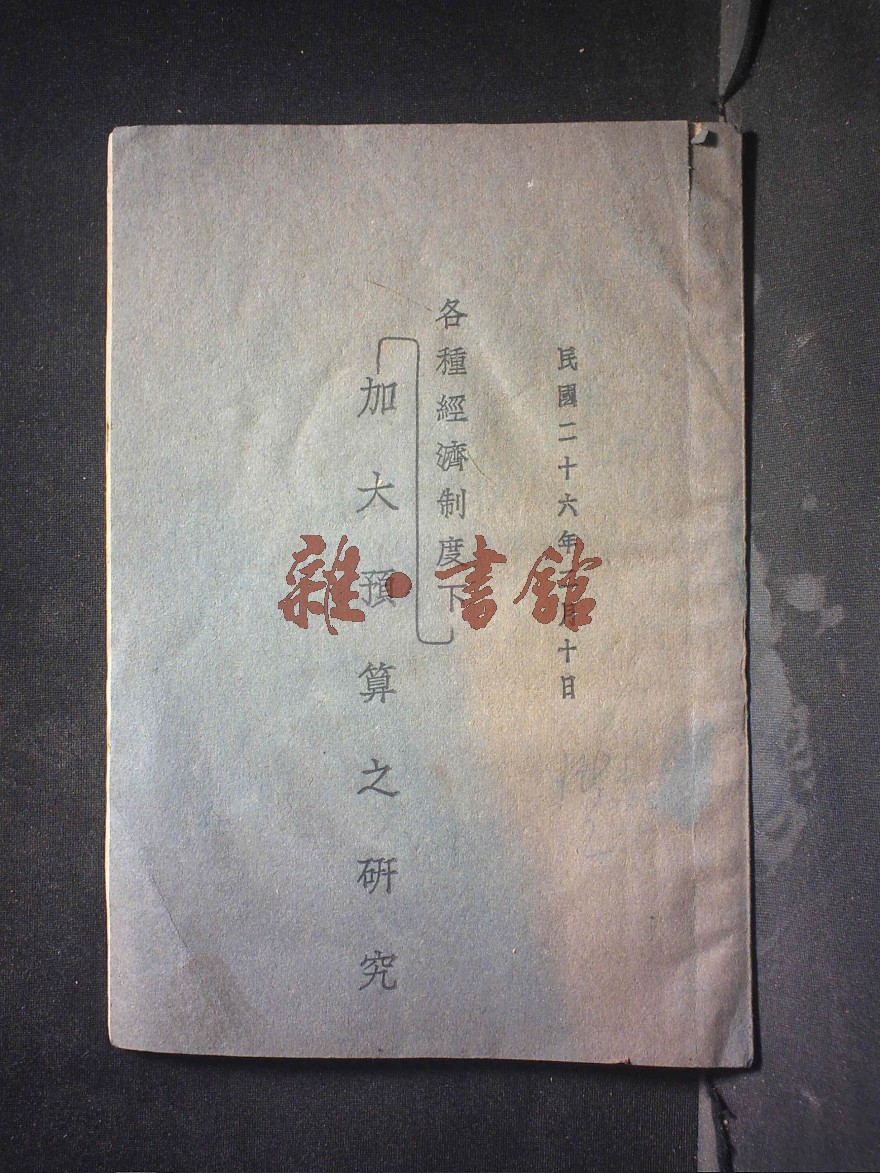 民國二十六年二月十日
各種經濟制度下
加大預算之研究
雜·書館